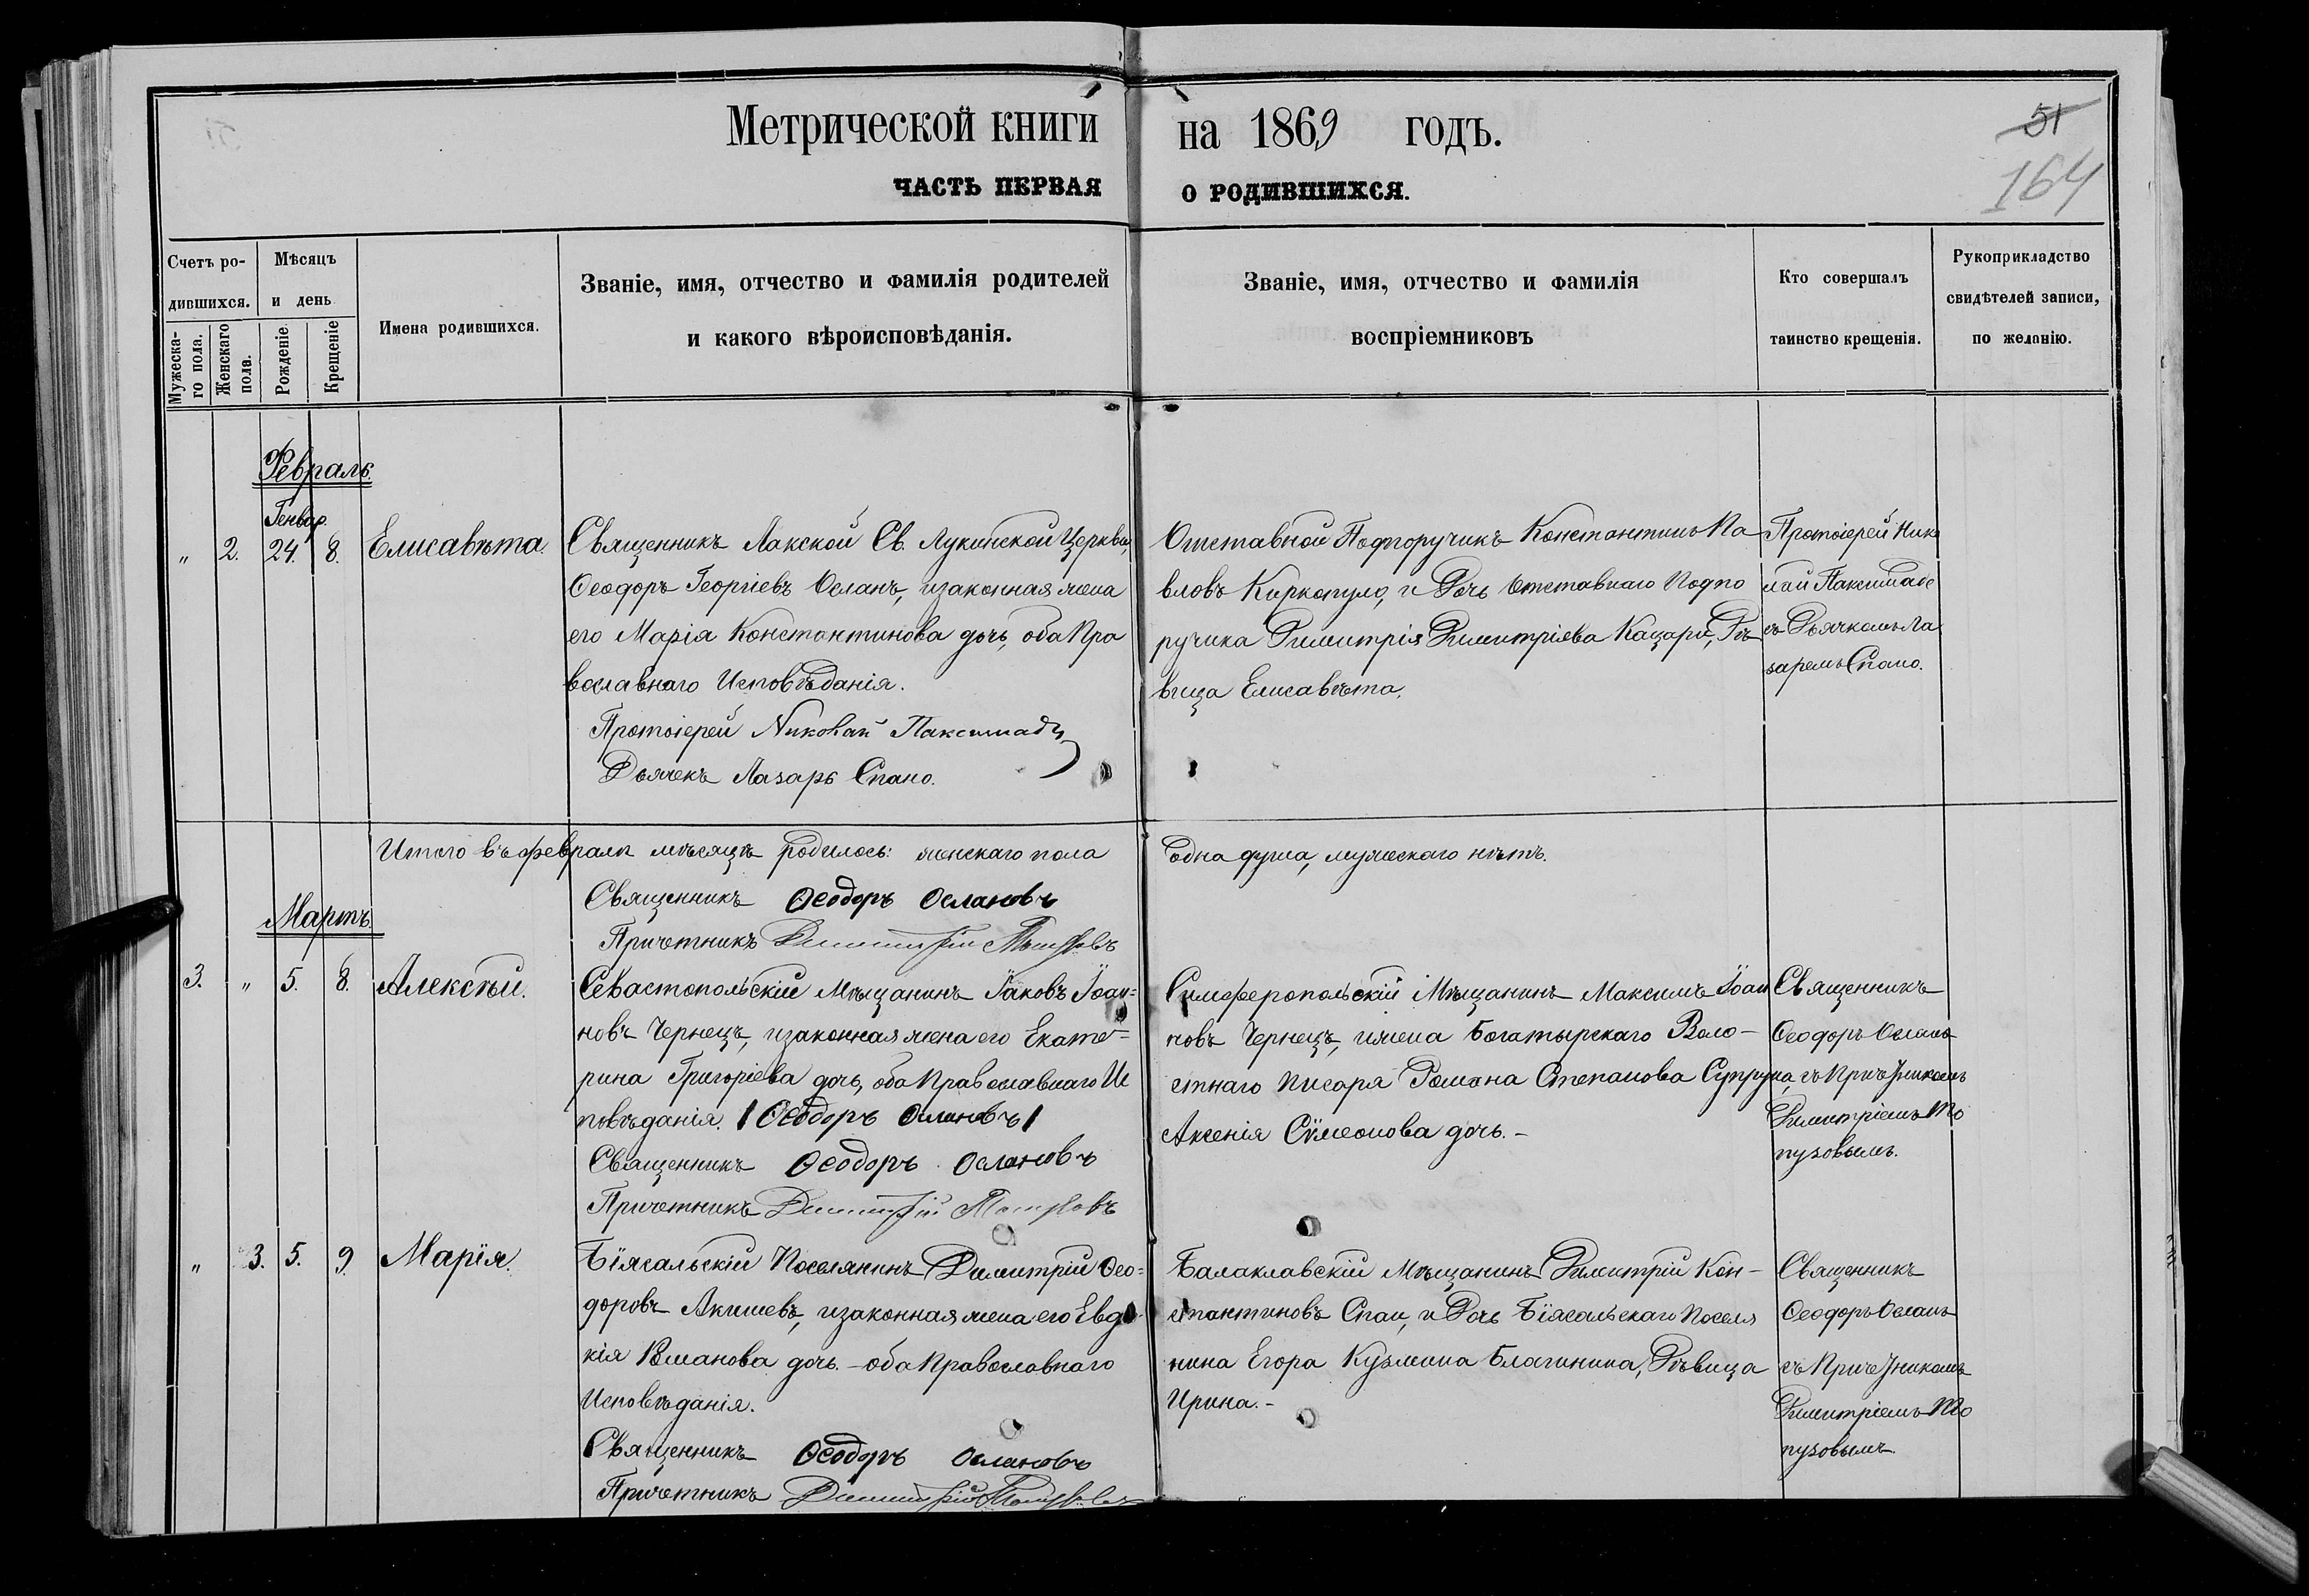 Метрической книги на 1869 годъ.
51
164
ЧАСТЬ ПЕРВАЯ О РОДИВШИХСЯ.
Счетъ ро-
дившихся.
Мужеска-
го пола.
Женскаго
пола.
Мѣсяцъ
и день
Рожденіе
Крещеніе
Имена родившихся.
Званіе, имя, отчество и фамилія родителей
и какого вѣроисповѣданія.
Званіе, имя, отчество и фамилія
воспріемниковъ
Кто совершалъ
таинство крещенія.
Рукоприкладство
свидѣтелей записи,
по желанію.
Февраль.
Генвар.
" 2. 24. 8. Елисавѣта.
Священникъ Лакской Св. Лукинской Церкви,
Ѳеодоръ Георгіевъ Ѳсланъ, изаконная жена
его Марія Константинова дочь, оба Пра
вославнаго Исповѣданія.
Протоіерей Николай Паксимади
Дьячекъ Лазарь Спано.
Отставной Подпоручикъ Константинъ Па
вловъ Киркопуло, и Дочь Отставнаго Подпо
ручика Димитрія Димитріева Кацари, Дѣ
вица Елисавѣта.
Протоіерей Нико
лай Паксимаде
съ Дьячкомъ Ла
заремъ Спано.
Итого въ февралѣ мѣсяцѣ родилось: женскаго пола
одна душа, мужескаго нѣтъ.
Священникъ Ѳеодоръ Ѳслановъ
Причетникъ Димитрій
Мартъ.
3. " 5. 8. Алексѣй.
Севастопольскій Мѣщанинъ Іаковъ Іоан=
новъ Чернецъ, изаконная жена его Екате-
рина Григоріева дочь, оба Православнаго Ис
повѣданія. Ѳеодоръ Ѳслановъ
Священникъ Ѳеодоръ Ѳслановъ
Причетникъ Димитрій
Симферопольскій Мѣщанинъ Максимъ Іоан
новъ Чернецъ, ижена Богатырскаго Воло-
стнаго писаря Романа Степанова Супруна,
Аксенія Сѵмеонова дочь.-
Священникъ
Ѳеодоръ Ѳсланъ
съ Причетникомъ
Димитріемъ То
пузовымъ.
" 3. 5. 9. Марія.
Біясальскій Поселянинъ Димитрій Ѳео=
доровъ Акишевъ, изаконная жена его Евдо-
кія Иванова дочь.-оба Православнаго
Исповѣданія.
Священникъ Ѳеодоръ Ѳслановъ
Причетникъ Димитрій
Балаклавскій Мѣщанинъ Димитрій Кон-
стантиновъ Спаи, и Дочь Біясальскаго Поселя
нина Егора Кузмина Благинина, Дѣвица
Ирина.-
Священникъ
Ѳеодоръ Ѳсланъ
съ Причетникомъ
Димитріемъ То
пузовымъ.